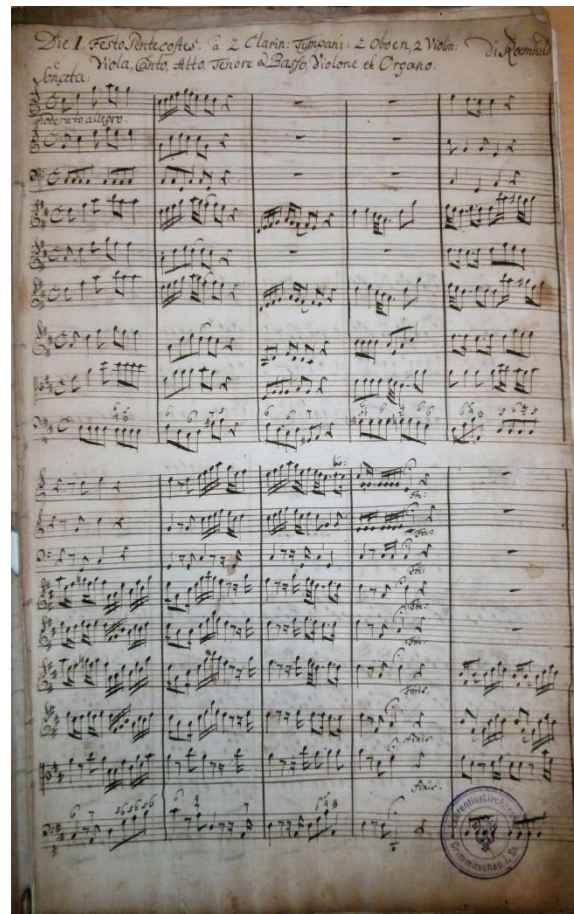 Die 1. Festo Pentecostes. à 2 Clarin: Tympani: 2 Oboen, 2 Violin: di Roemhild
Viola, Canto, Alto, Tenore è Basso, Violone et Organo.
Sonata.
moderato allegro.
Fin:
Fin:
Fin:
Fin:
Finis.
Finis
Finis.
Laurentiuskirche
Crimmitschau